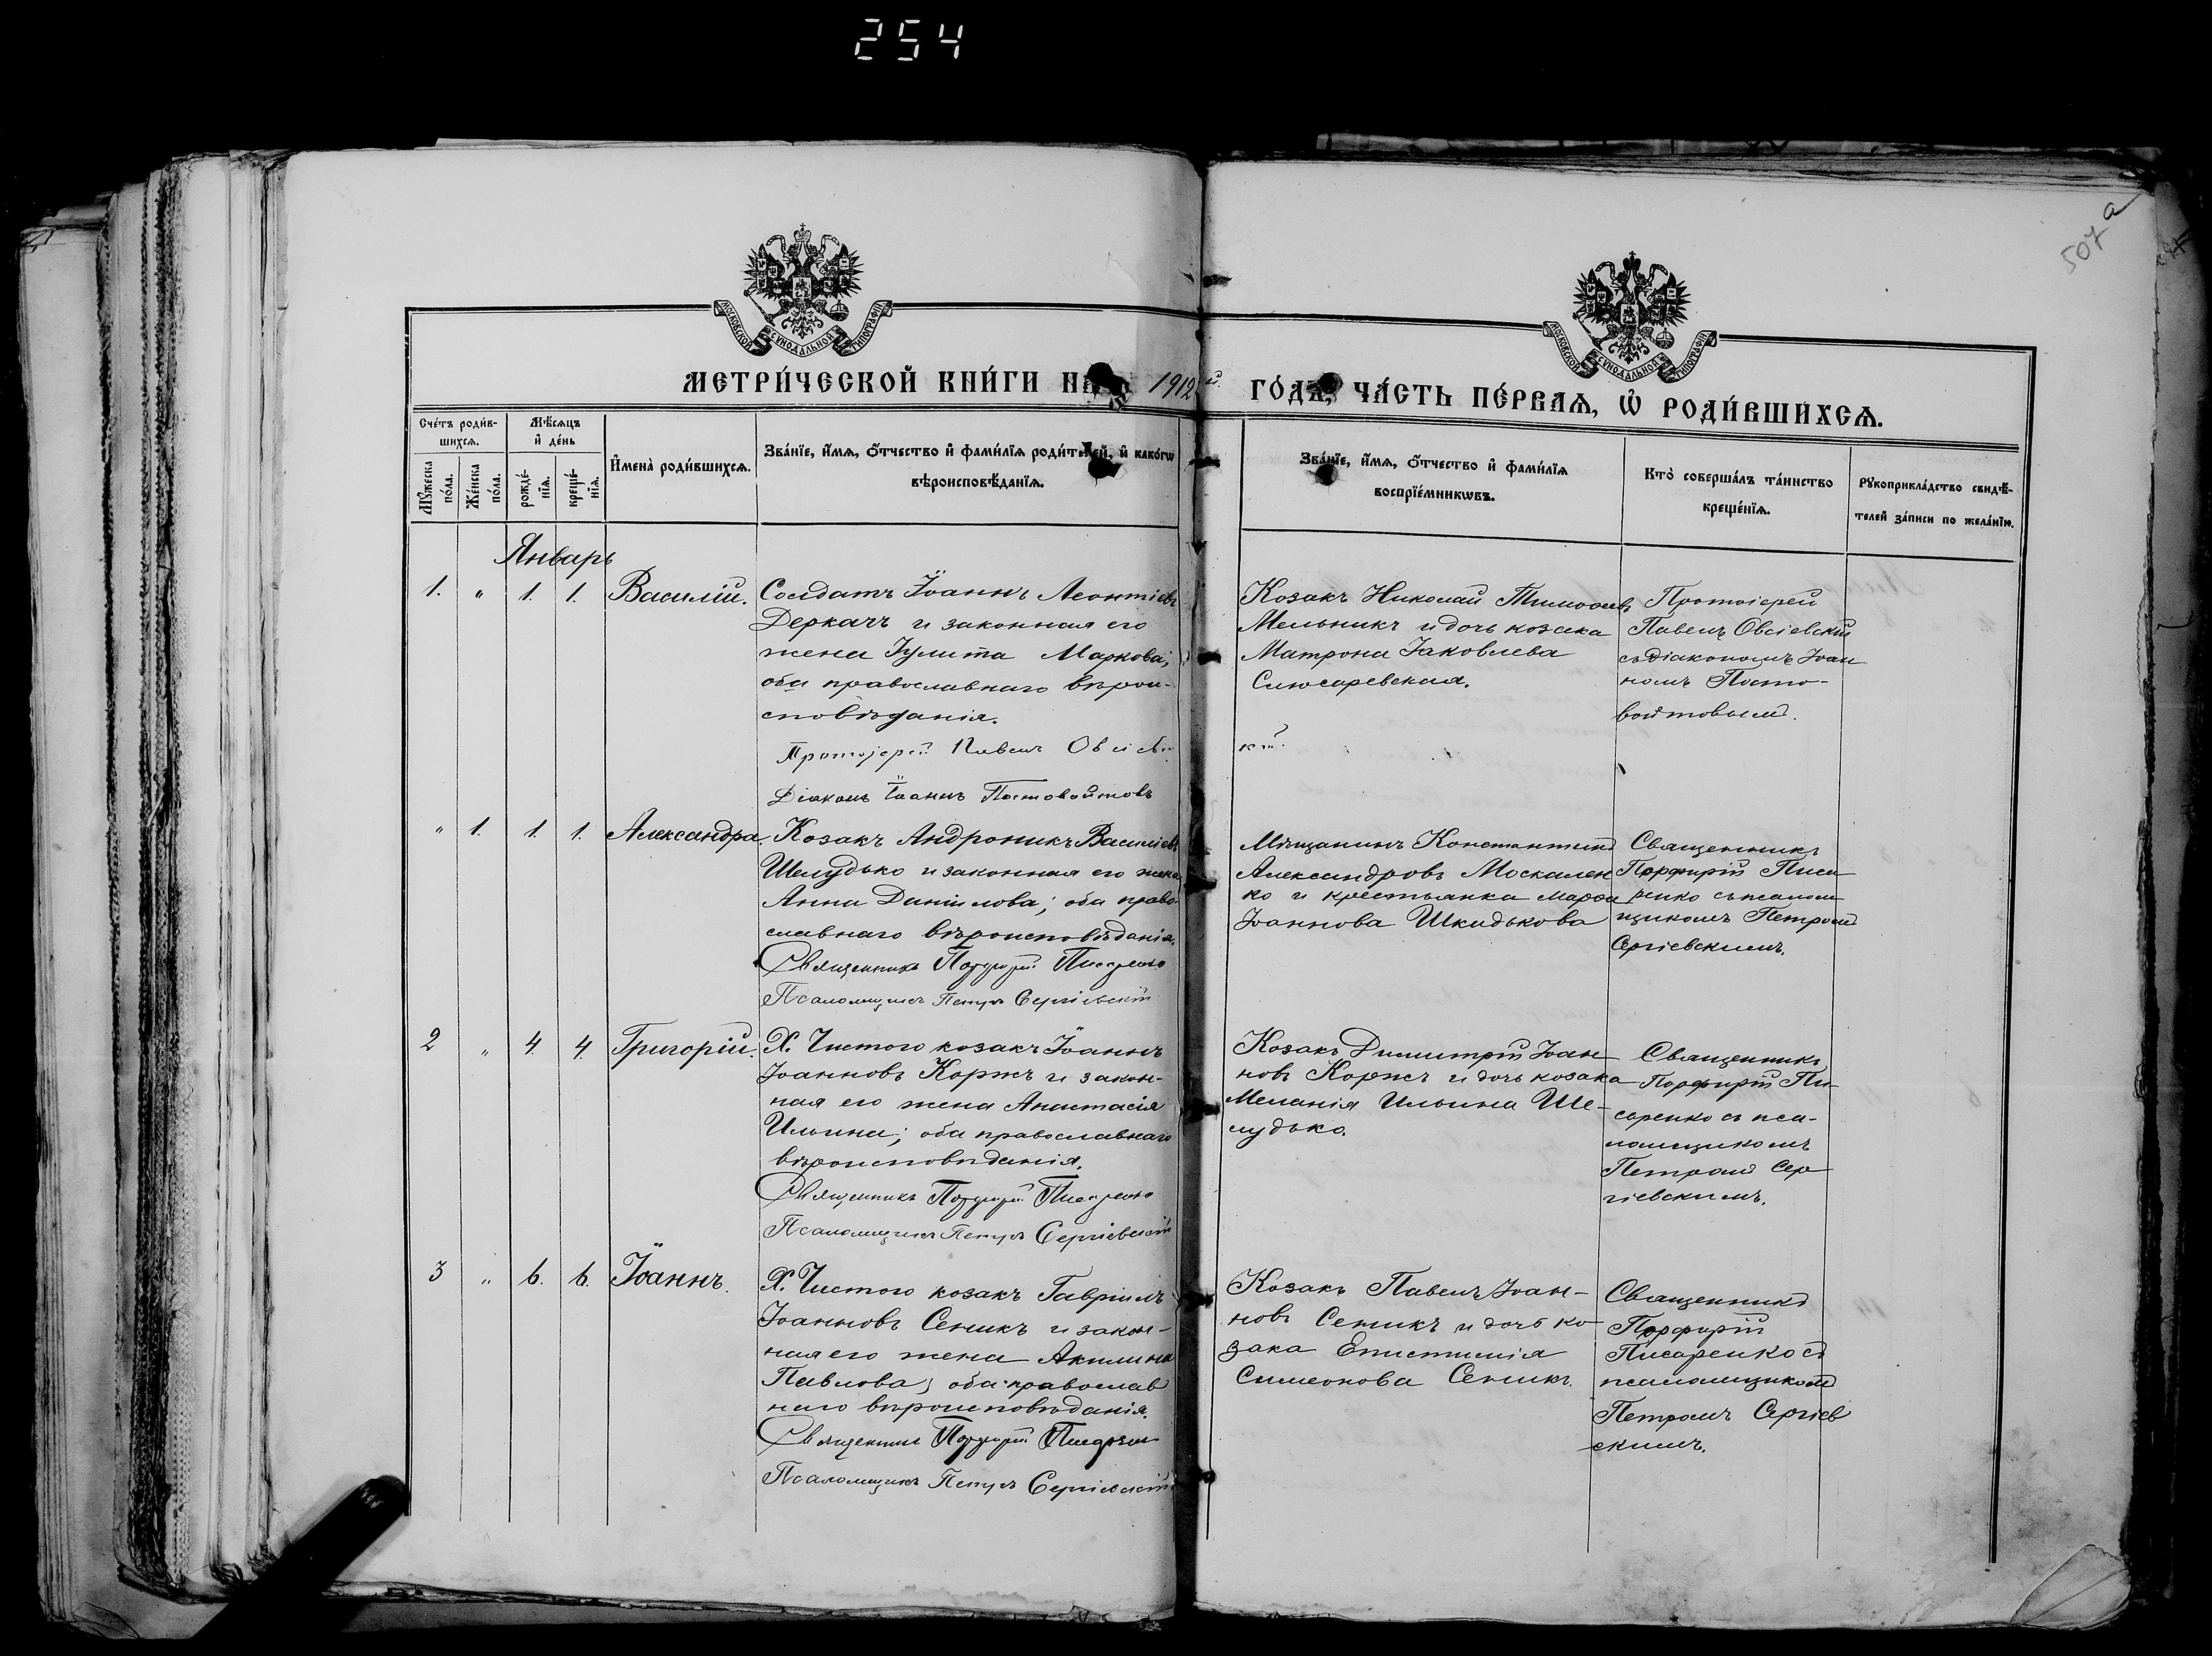 254
507 а
МОСКОВСКОЙ СѴНОДАЛЬНОЙ ТИПОГРАФІИ
МОСКОВСКОЙ СѴНОДАЛЬНОЙ ТИПОГРАФІИ
МЕТРИ́ЧЕСКОЙ КНИ́ГИ НА 1912 й. ГО́ДЪ, ЧА́СТЬ ПЕ́РВАѦ, Ѡ҆ РОДИ́ВШИХСѦ.
Сче́тъ роди́в-
шихсѧ.
Мꙋ́жеска по́ла.
Же́нска по́ла.
Мѣ́сѧцъ
и҆ де́нь
рожде́-
нїѧ.
креще́-
нїѧ.
И҆мена̀ роди́вшихсѧ.
Зва́нїе, и҆́мѧ, ѻ҆́тчество и҆ фами́лїѧ роди́телей, и҆ како́гѡ
вѣроисповѣ́данїѧ.
Зва́нїе, и҆́мѧ, ѻ҆́тчество и҆ фами́лїѧ
воспрїе́мникѡвъ.
Кто̀ соверша́лъ та́инство
креще́нїѧ.
Рꙋкоприкла́дство свидѣ́-
телей за́писи по жела́нїю.
Январь
1. " 1. 1. Василій.
Солдатъ Іоаннъ Леонтіевъ
Деркачъ и законная его
жена Іулита Маркова;
оба православнаго вѣрои-
сповѣданія.
Протоіерей Павелъ Овсіевскій.
Діаконъ Іоаннъ Постовойтовъ
Козакъ Николай Тимоѳеевъ
Мельникъ и дочь козака
Матрона Іаковлева
Слюсаревская.
Протоіерей
Павелъ Овсіевскій
съ діакономъ Іоан
номъ Посто-
войтовымъ.
" 1. 1. 1. Александра.
Козакъ Андроникъ Василіевъ
Шелудько и законная его жена
Анна Даніилова; оба право-
славнаго вѣроисповѣданія.
Священникъ Порфирій Писаренко
Псаломщикъ Петръ Сергіевскій
Мѣщанинъ Константинъ
Александровъ Москален
ко и крестьянка Марѳа
Іоаннова Шкидькова
Священникъ
Порфирій Писа
ренко съ псалом
щикомъ Петромъ
Сергіевскимъ.
2 " 4. 4. Григорій.
Х. Чистого козакъ Іоаннъ
Іоанновъ Коржъ и закон-
ная его жена Анастасія
Ильина; оба православнаго
вѣроисповѣданія.
Священникъ Порфирій Писаренко
Псаломщикъ Петръ Сергіевскій
Козакъ Димитрій Іоан-
новъ Коржъ и дочь козака
Меланія Ильина Ше-
лудько.
Священникъ
Порфирій Пи-
саренко съ пса-
ломщикомъ
Петромъ Сер
гіевскимъ.
3 " 6. 6. Іоаннъ.
Х. Чистого козакъ Гавріилъ
Іоанновъ Сеникъ и закон-
ная его жена Акилина
Павлова; оба православ
наго вѣроисповѣданія.
Священникъ Порфирій Писаренко
Псаломщикъ Петръ Сергіевскій
Козакъ Павелъ Іоан-
новъ Сеникъ и дочь ко
зака Епистимія
Симеонова Сеникъ.
Священникъ
Порфирій
Писаренко съ
псаломщикомъ
Петромъ Сергіев
скимъ.